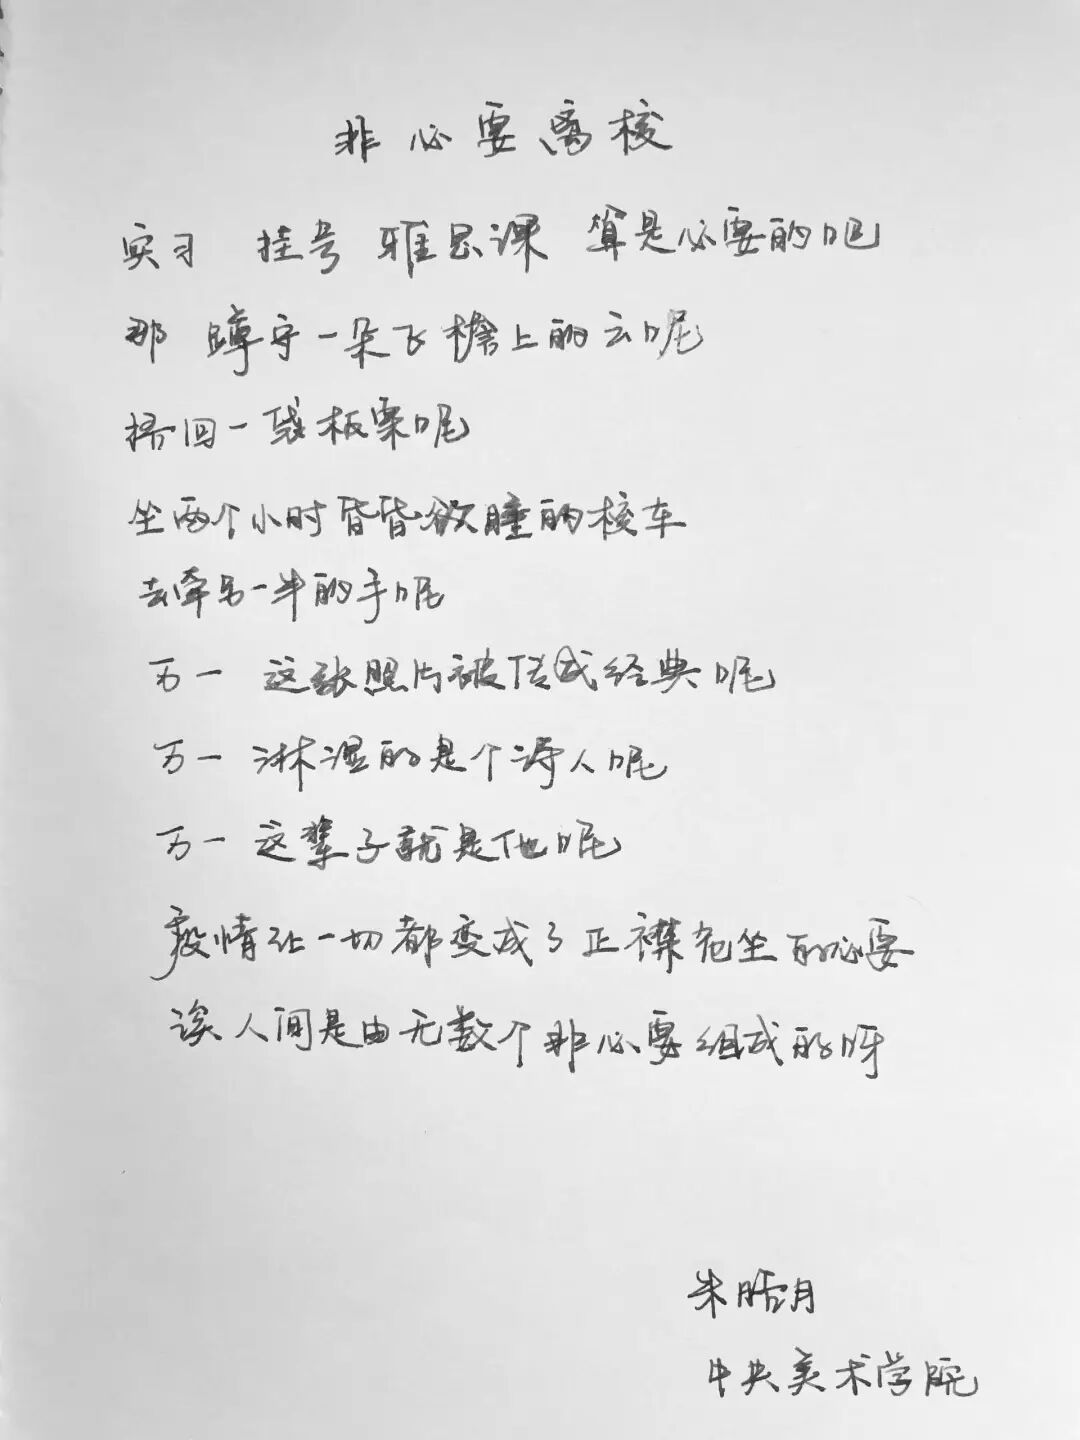 非必要离校
实习 挂号 雅思课 算是必要的吧
那 蹲守一朵飞檐上的云呢
捎回一袋板栗呢
坐两个小时昏昏欲睡的校车
去牵另一半的手呢
万一 这张照片被传成经典呢
万一 淋湿的是个诗人呢
万一 这辈子就是他呢
疫情让一切都变成了正襟危坐的必要
诶人间是由无数个非必要组成的呀
朱皓月
中央美术学院